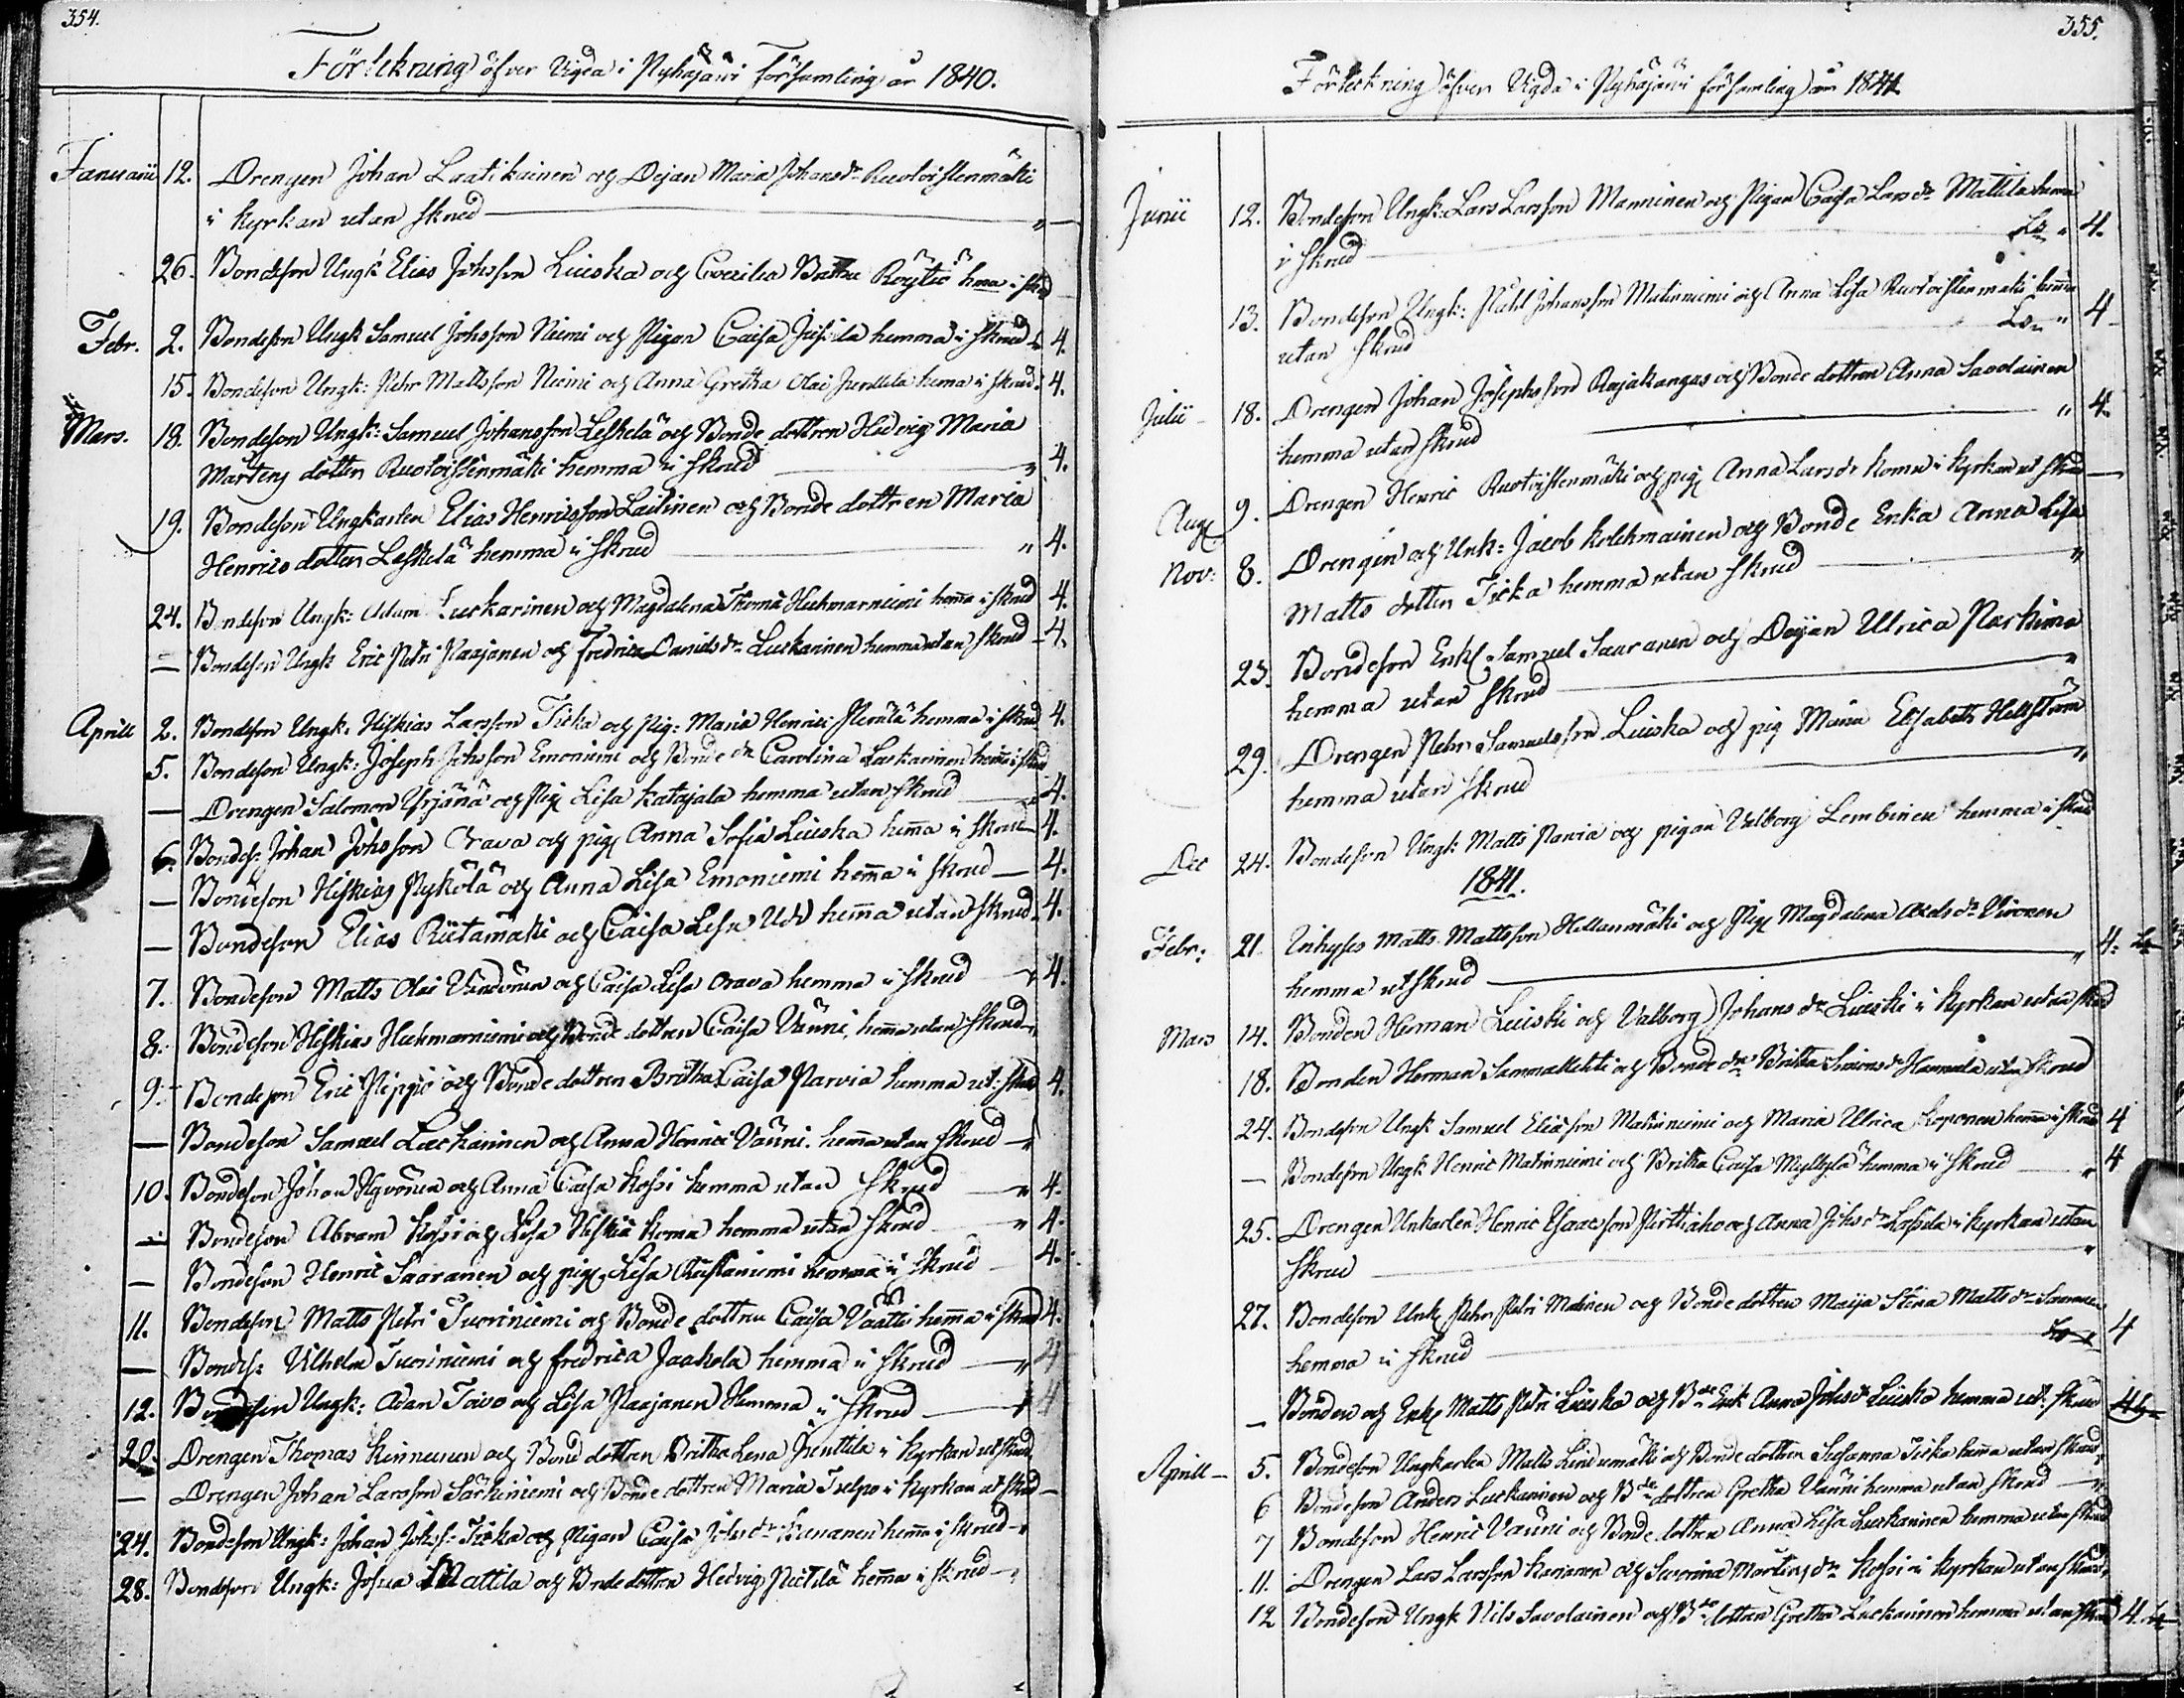 354.
Förtekning öfver Vigda i Pyhäjärvi Församling år 1840.
Januarii 12. Drengen Johan Laatikainen och Dejan Maria Johansdr Ruotoistenmäki
i Kyrkan utan skrud — "
26. Bondeson Ungk Elias Johsson Liiska och Caecilia Röytiö hma i skrud
Febr. 2. Bondeson Ungk Samuel Johsson Niemi och Pigan Caisa Jusila hemma i skrud 4.
15. Bondeson Ungk: Pehr Mattsson Niemi och Anna Gretha Olai Junttila hema i skrud 4.
Mars. 18. Bondeson Ungk: Samuel Johansson Leskelä och Bonde dottren Hedvig Maria
Mårtens dotter Ruotoistenmäki hemma i skrud — " 4.
19. Bondeson Ungkarlen Elias Henricsson Laitinen och Bonde dottren Maria
Henrics dotter Leskelä hemma i skrud — " 4.
24. Bondeson Ungk: Adam Luskarinen och Magdalena Thomæ Hukmarniemi hema i skrud 4.
— Bondeson Ungk Eric Petri Paajanen och Fredrica Danielsdr Luskarinen hemma utan skrud — 4.
Aprill 2. Bondeson Ungk. Hiskias Larsson Ticka och Pig: Maria Henrici hemma i skrud 4.
5. Bondeson Ungk: Joseph Johsson Emoniemi och Bonde dr Carolina Laskarinen hema i skrud
— Drengen Salomon Yrjänä och Pig Lisa Katajala hemma utan skrud — 4.
6. Bondes: Johan Johsson Orava och pig Anna Sofia Liiska hema i skrud — 4.
— Bondeson Hiskias Pykölä och Anna Lisa Emoniemi hema i skrud — 4.
— Bondeson Elias Riitamäki och Caisa Lisa hema utan skrud 4.
7. Bondeson Matts Olai Väisänen och Caisa Lisa Orava hemma i skrud — 4.
8. Bondeson Hiskias Hukmarniemi och Bonde dottren Caisa Vänni hema utan skrud
9. Bondeson Eric Pippo och Bonde dottren Britha Caisa Parvia hemma ut: skrud 4.
— Bondeson Samuel Luskarinen och Anna Henrici Vänni. hema utan skrud — "
10. Bondeson Johan Hyvönen och Anna Caisa Kossi hemma utan skrud — " 4.
— Bondeson Abram Kossi och Lisa Hiskiæ Koma hemma utan skrud — " 4.
— Bondeson Henric Saaranen och pig. Lisa Ruskaniemi hemma i skrud 4.
11. Bondeson Matts Petri Tuoriniemi och Bonde dottren Caisa Väätti hema i skrud 4.
— Bondes: Vilhelm Tuoriniemi och Fredrica Jaakola hemma i skrud — " 4
12. Bondeson Ungk: Adam Toivo och Lisa Paajanen Hemma i skrud — 4
20. Drengen Thomas Kinnunen och Bond dottren Britha Lena Junttila i Kyrkan ut skrud
— Drengen Johan Larsson Särkiniemi och Bonde dottren Maria Tulpo i Kyrkan ut skrud —
24. Bondeson Ungk: Johan Johss: Ticka och Pigan Caisa Johsdr hema i skrud — "
28. Bondeson Ungk: Josua Mattila och Bnde dotter Hedvig Pietilä hema i skrud — "
355.
Förteckning öfver Vigda i Pyhäjärvi församling år 1841
Junii 12. Bondeson Ungk: Lars Larsson Manninen och Pigan Caisa Lars dr Mattila hema
i skrud — " 4.
13. Bondeson Ungk: Påhl Johansson Matinniemi och Anna Lisa Ruotoistenmäki hema
utan skrud — " 4
Julii 18. Drengen Johan Josephsson Rajakangas och Bonde dottren Anna Savolainen
hemma utan skrud — " 4.
Aug 9. Drengen Henric Ruotoistenmäki och pig Anna Larsdr Koma i Kyrkan ut skrud —
Nov: 8. Drengen och Unk: Jacob Kolehmainen och Bonde Enka Anna Lisa
Matts dotter Ticka hemma utan skrud — "
23. Bondeson Enkl Samuel Saaranen och Dejan Ulrica
hemma utan skrud — "
29. Drengen Pehr Samuelsson Liiska och pig Maria Elisabeth Hellström
hemma utan skrud — "
Dec 24. Bondeson Ungk Matts Parvia och pigan Valborg Lembinen hemma i skrud
1841.
Febr: 21. Inhyses Matts Mattsson Hellanmäki och Pig Magdalena Axelsdr Vironen
hemma ut skrud — " 4.
Mars 14. Bonden Herman Liiski och Valborg Johans dr Liiski i Kyrkan utan skrud
18. Bonden Herman Sammallehti och Bonde dr Britha Simonsdr Hannula utan skrud
24. Bondeson Ungk Samuel Eliasson Matinniemi och Maria Ulrica Koponen hema i skrud 4
— Bondeson Ungk Henric Matinniemi och Britha Caisa Myllylä hemma i skrud — " 4
25. Drengen Unkarlen Henric Isaacsson Pirttiaho och Anna Johsdr Lassila i Kyrkan utan
skrud — "
27. Bondeson Unk Pehr Petri Matinen och Bonde dottren Maija Stina Mattsdr
hemma i skrud — 4
— Bonden och Enkl Matts Petri Liiska och Bde Enk Anna Johsdr Liiska hemma ut skrud
Aprill — 5. Bondeson Ungkarlen Matts Lindumäki och Bonde dotter Susanna Ticka hema utan skrud
6 Bondeson Anders Luskarinen och Bde dottren Gretha Vänni hemma utan skrud — "
7 Bondeson Henric Vänni och Bonde dottren Anna Lisa Luskarinen hemma utan skrud
11. Drengen Lars Larsson Karjanen och Severina Mårtensdr Kossi i Kyrkan utan skrud
12 Bondeson Ungk Nils Savolainen och Bde dotter Gretha Luskarinen hemma utan skrud 4.